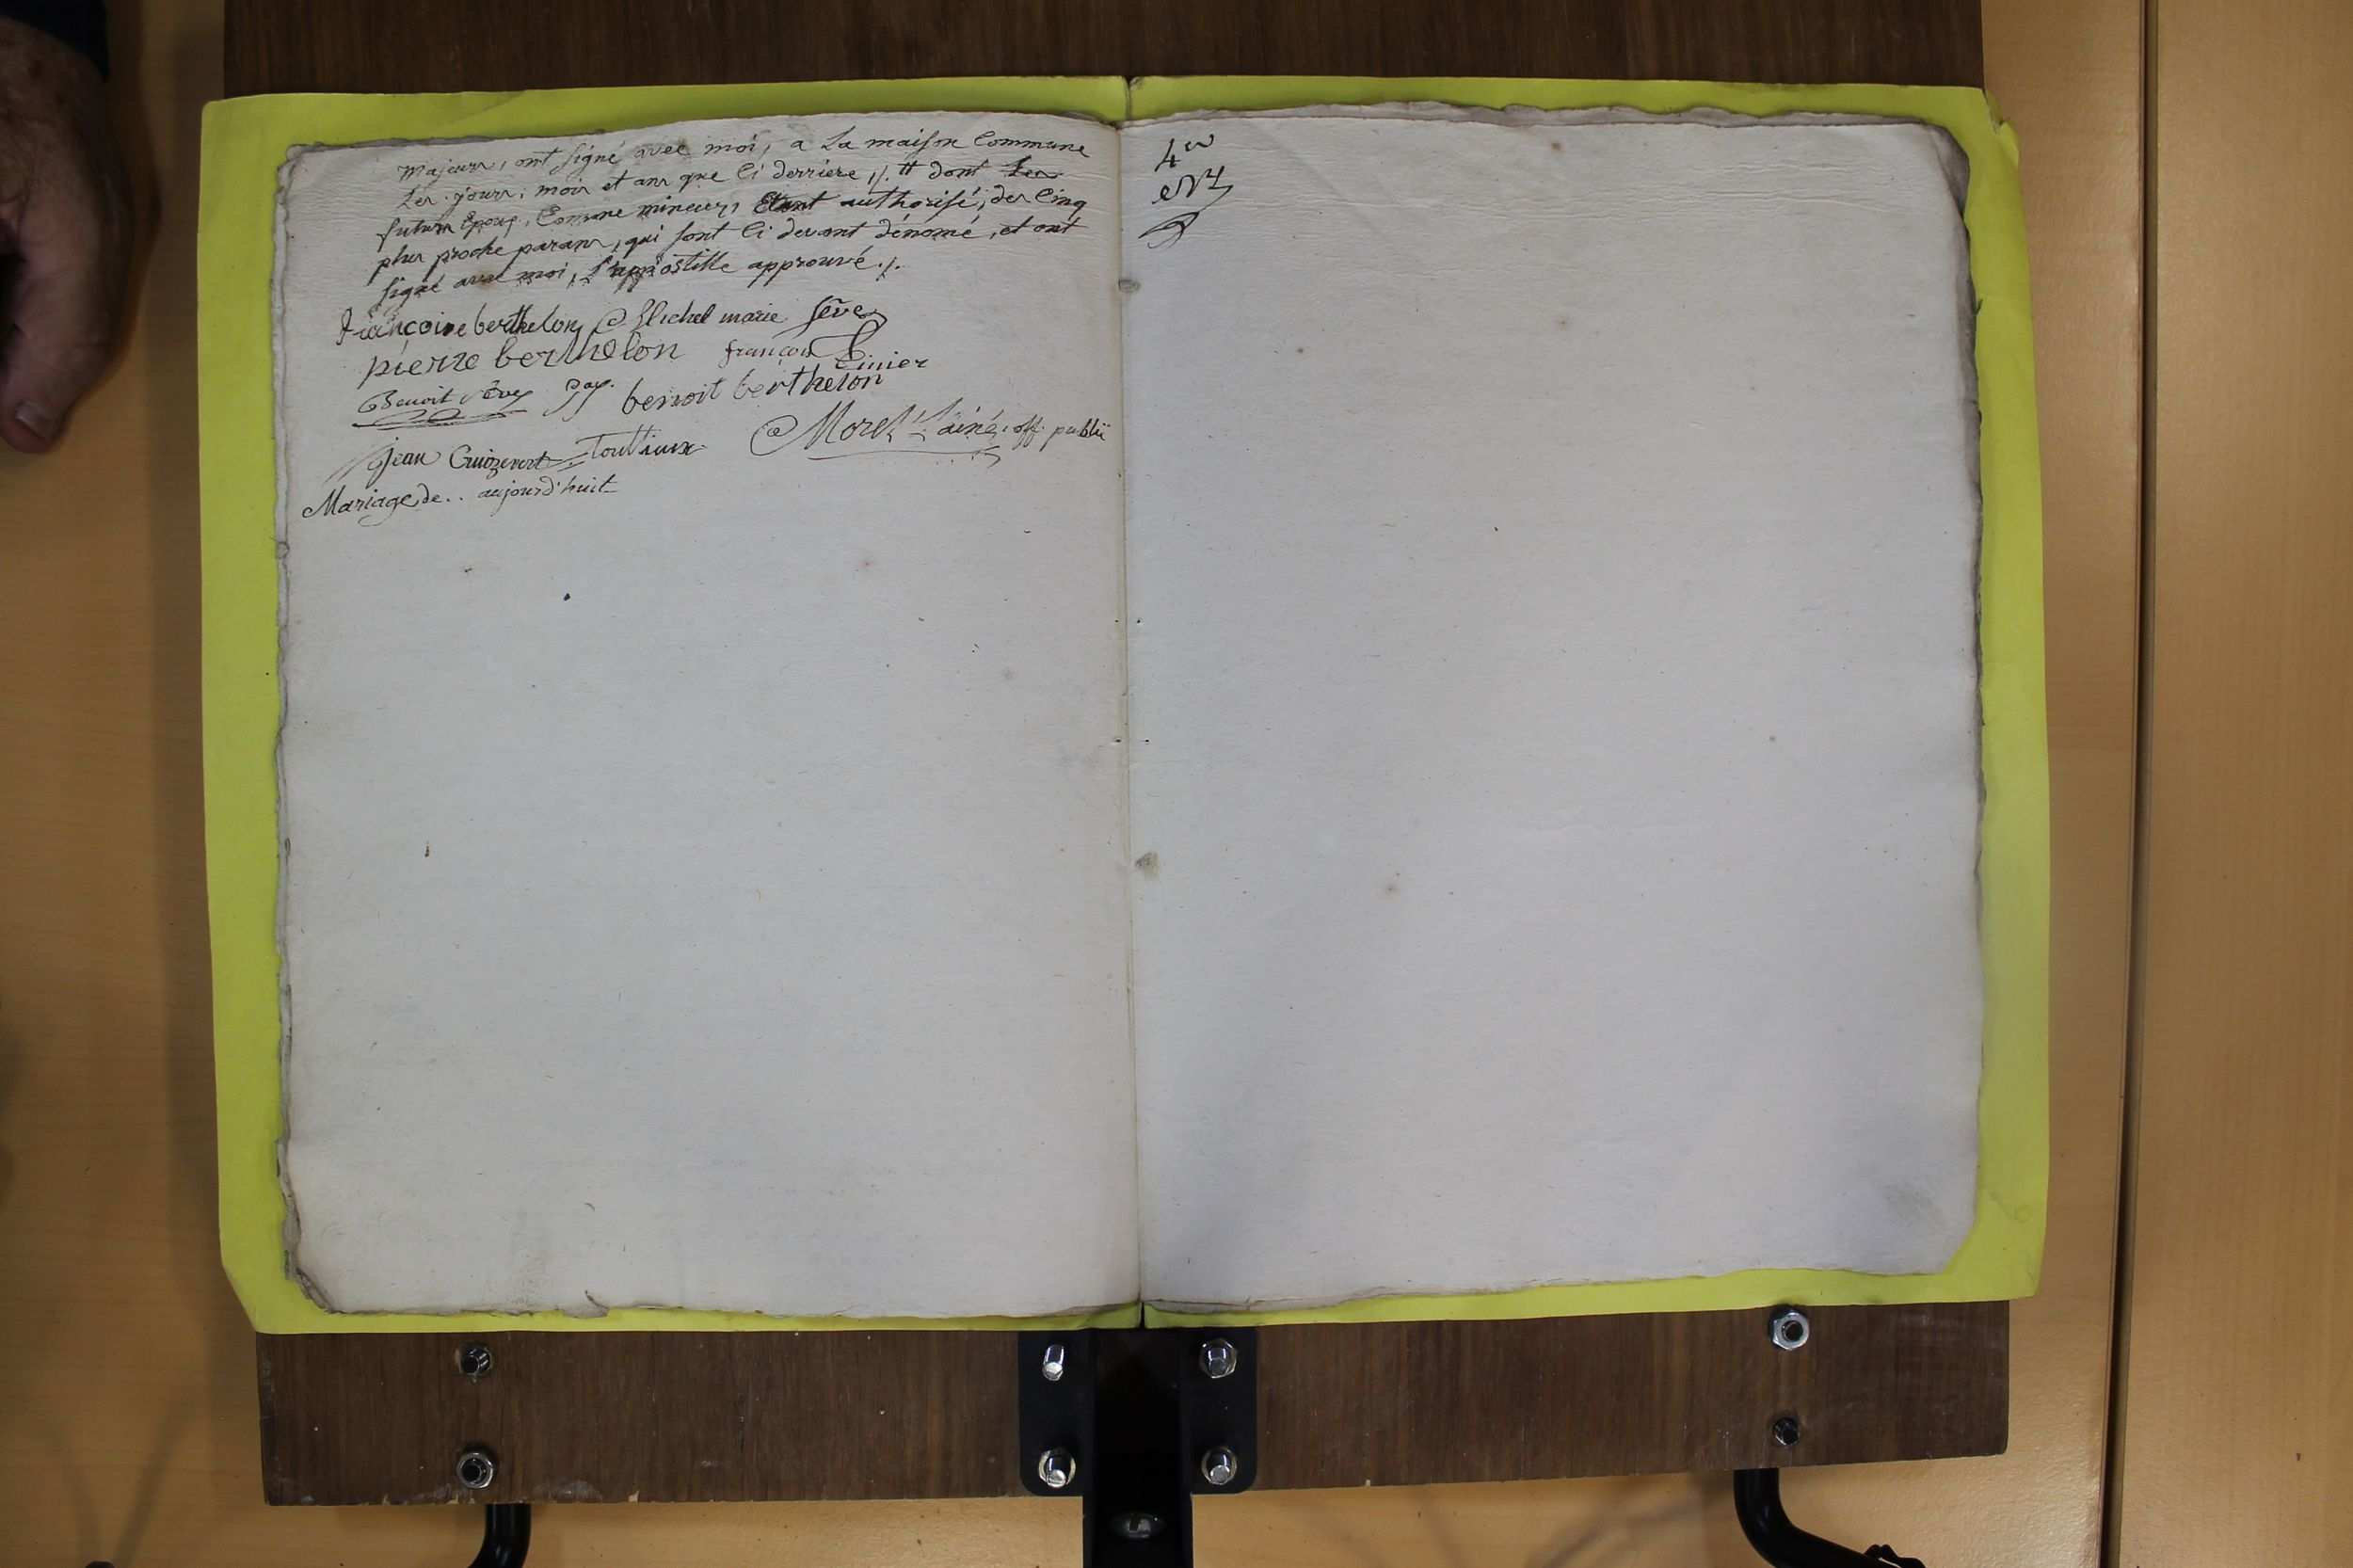 majeurs, ont signé avec moi, a La maison Commune
Les jours, mois et ans que Ci derriere, // # dont Les
futurs Epoux, Comme mineurs, Etant authorisé, des Cinq
plus proche parans, qui sont Ci devant dénomé, et ont
signé avec moi, L'appostille approuvé ./.
françoise berthelon Michel marie sève
pierre berthelon françois
Benoit Sève benoit berthelon
Morel L'ainé, off. public
jean
Mariage de . . aujourd'huit
4